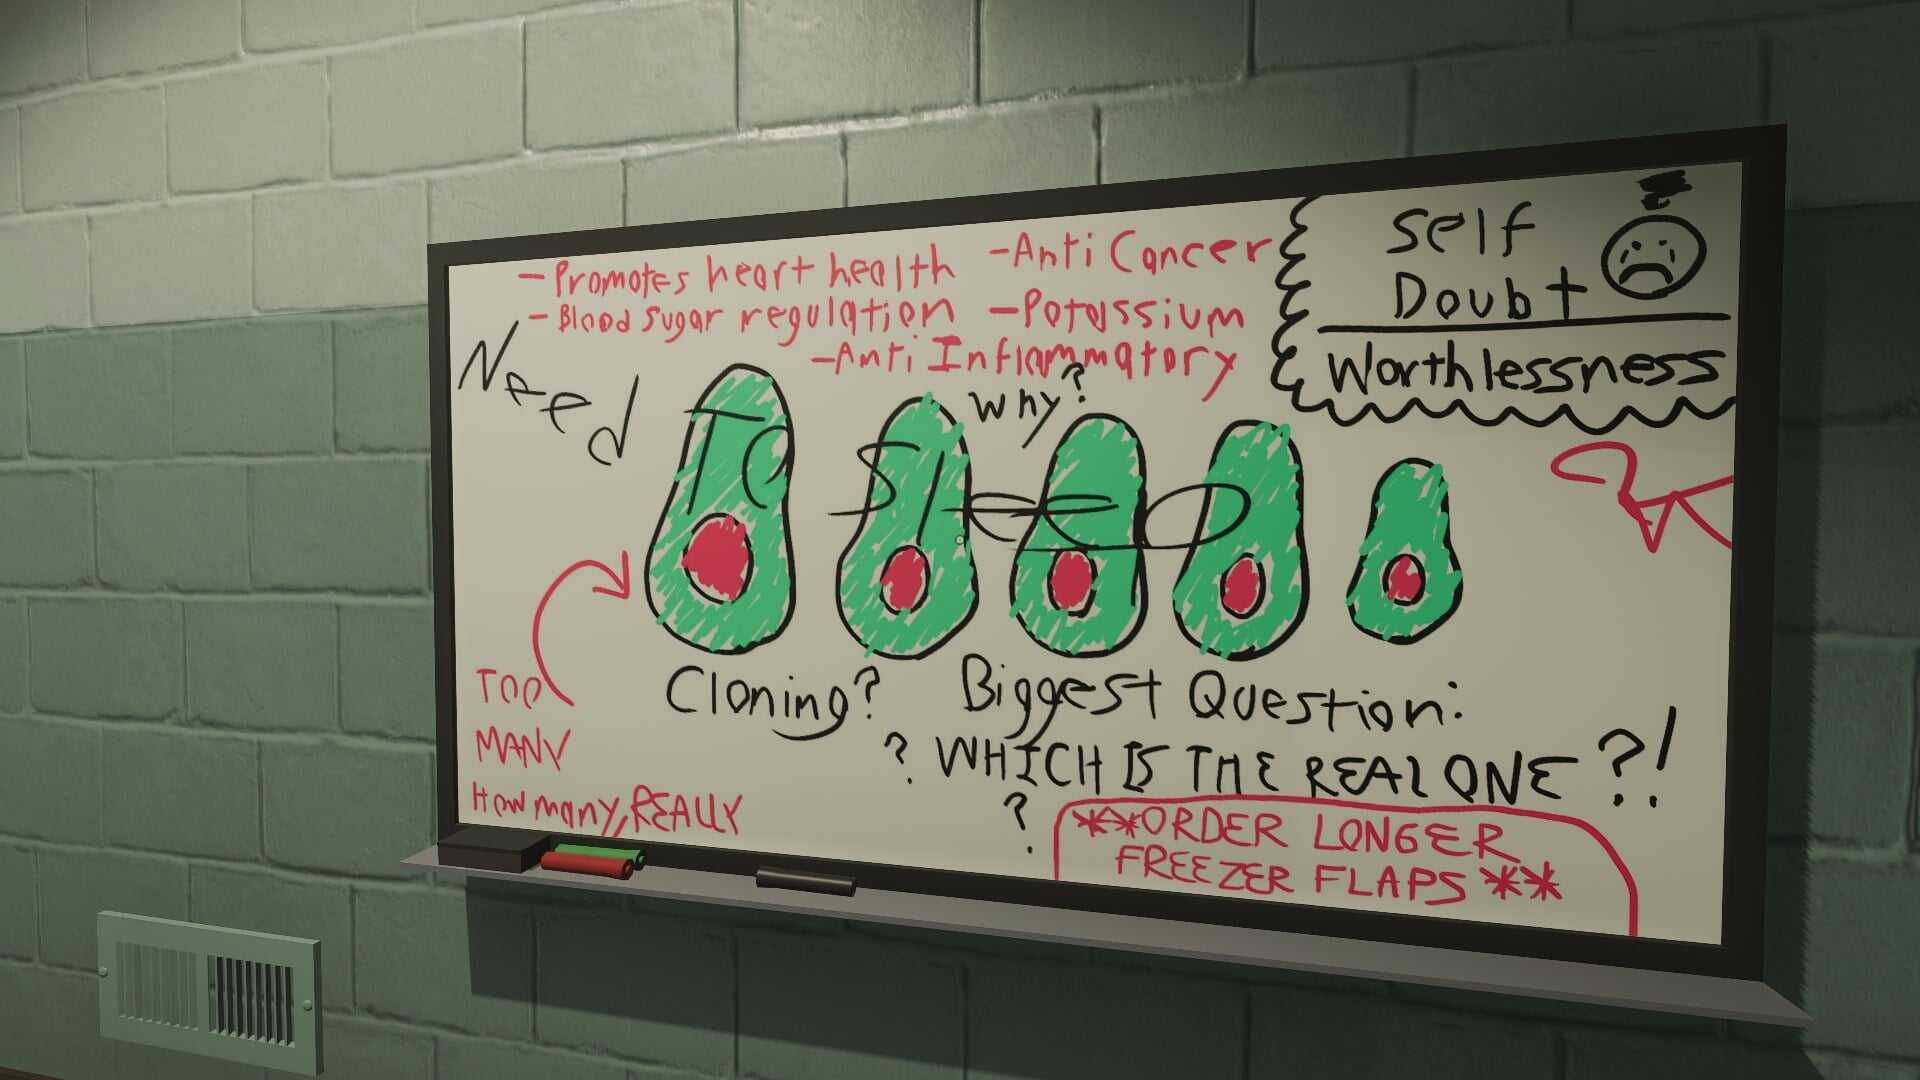 - Promotes heart health
- Blood sugar regulation
- Anti Cancer
- Potassium
- Anti Inflammatory
Self
Doubt
Worthlessness
Need To Sleep
Why?
TOO
MANY
How many, REALLY
Cloning?
Biggest Question:
? WHICH IS THE REAL ONE?!
?
**ORDER LONGER
FREEZER FLAPS**